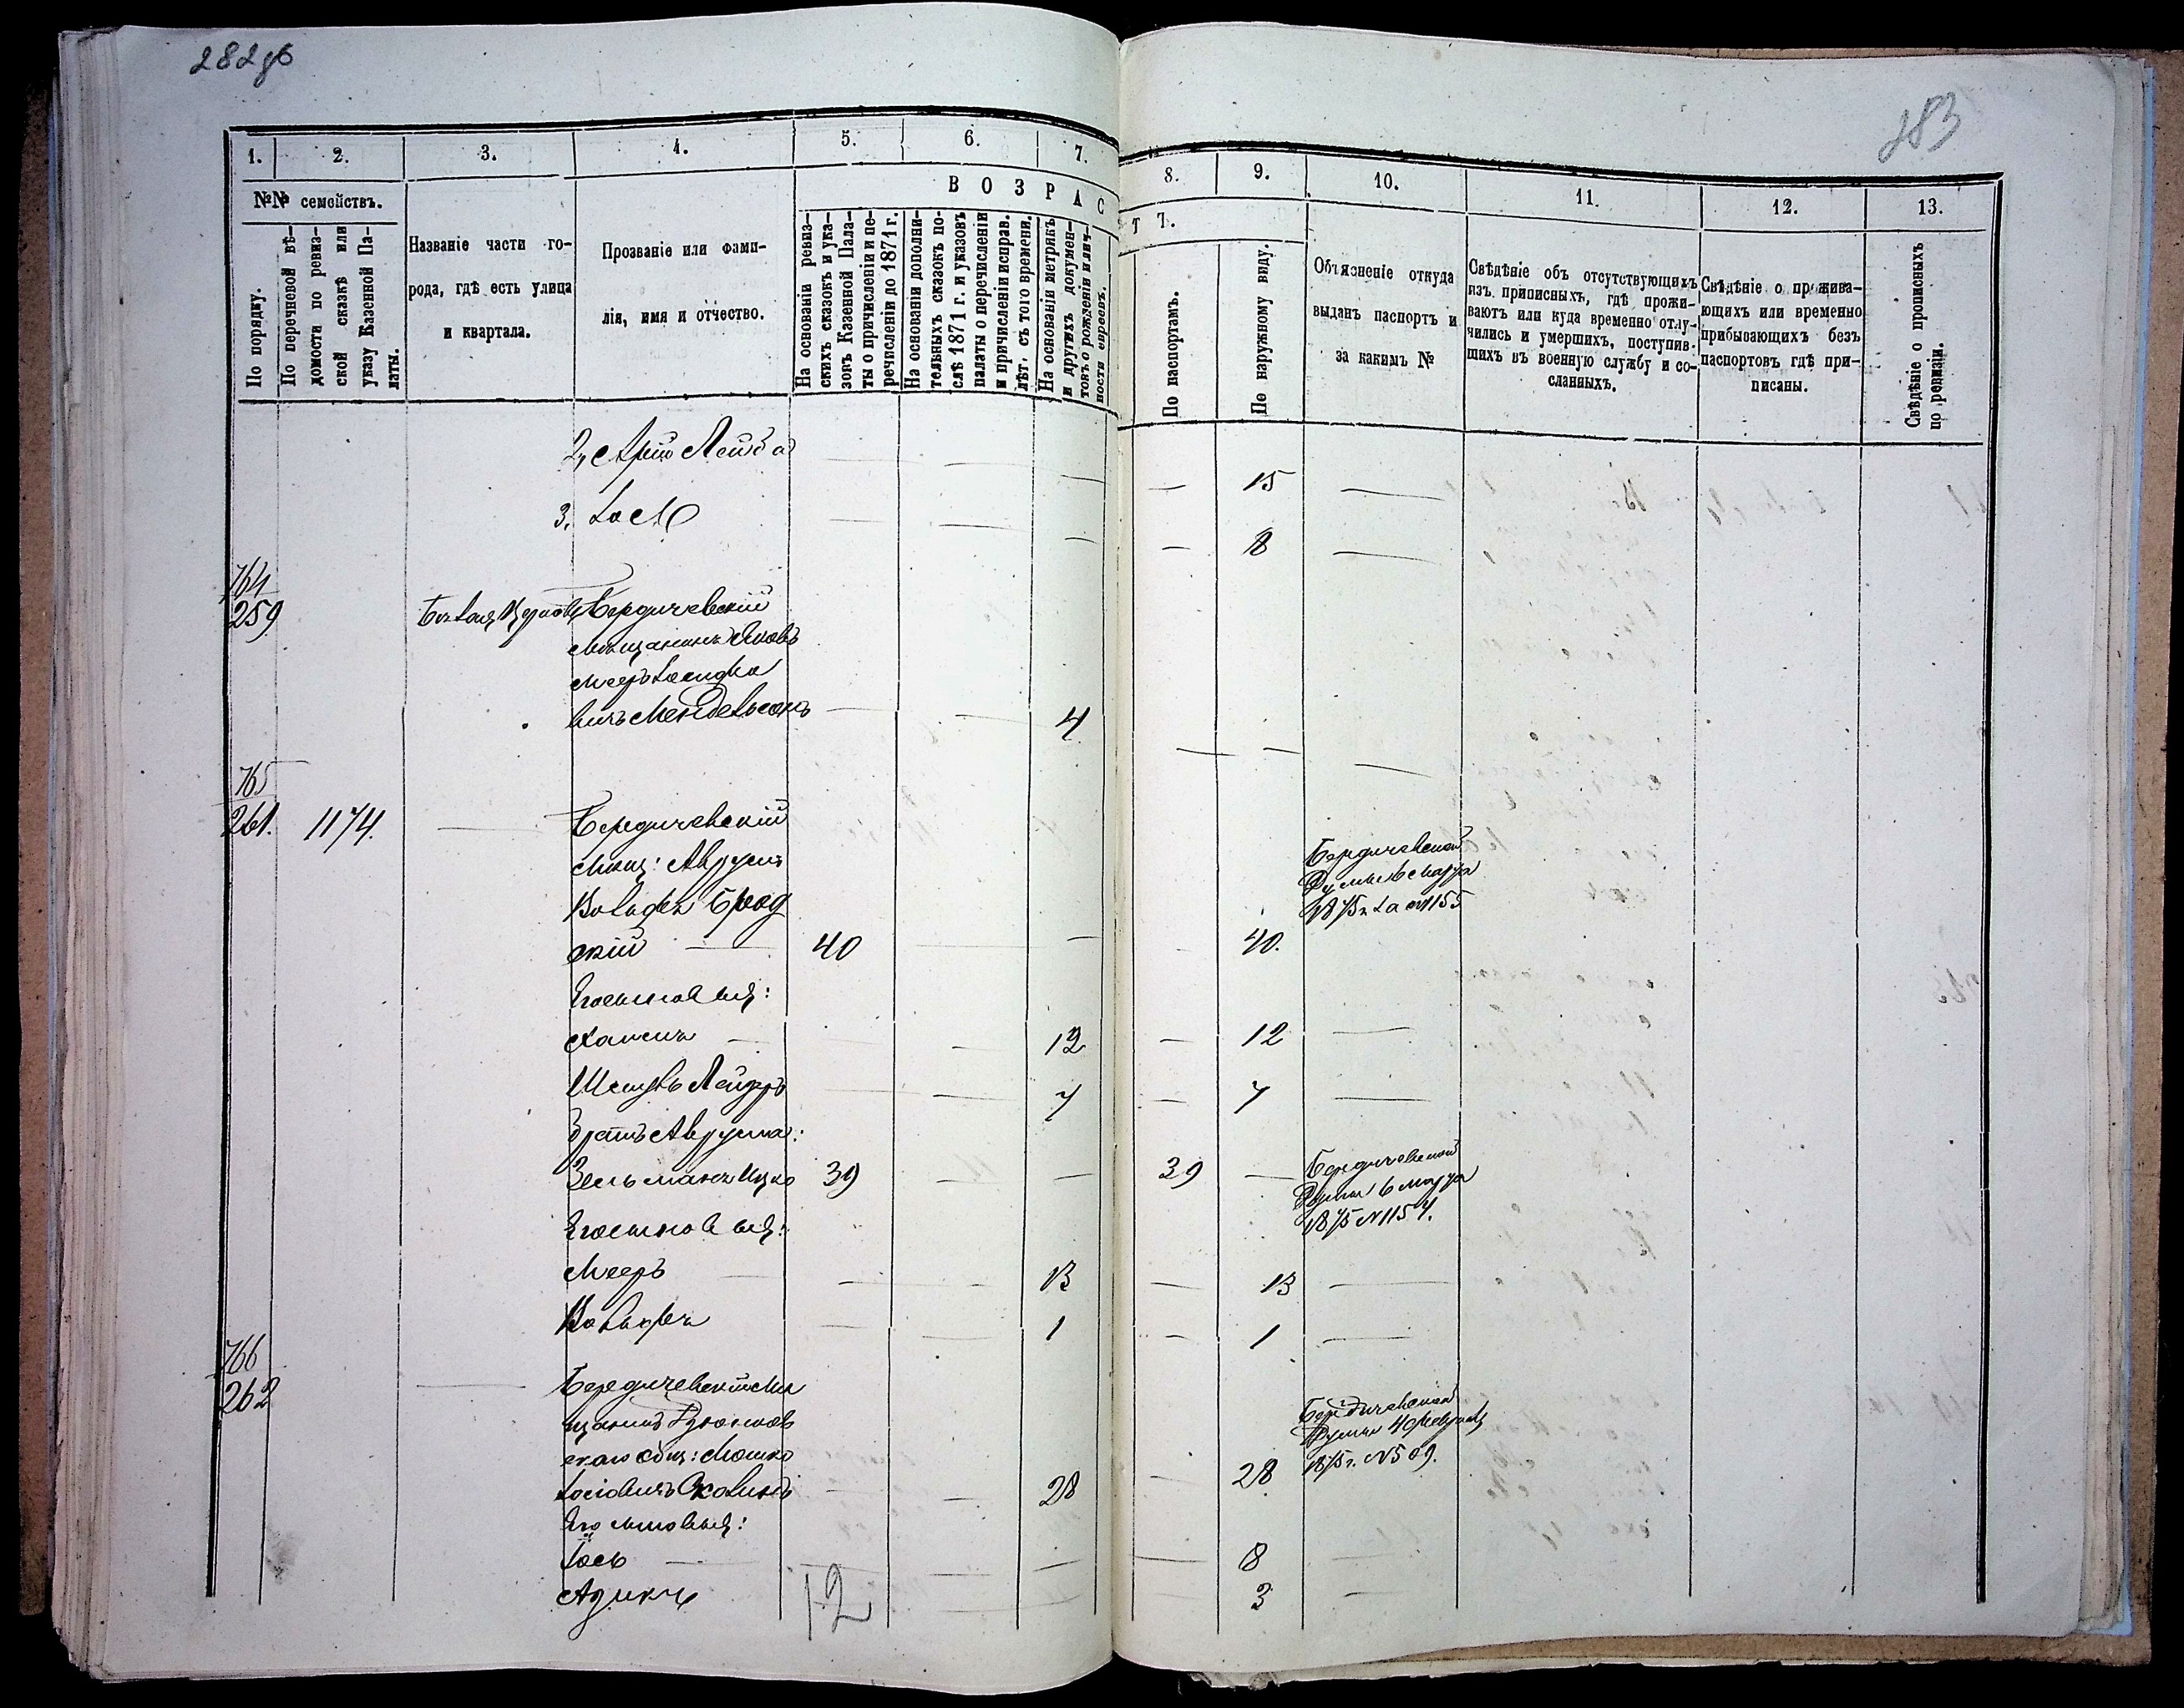 282об
283
1.
2.
3.
4.
5.
6.
7.
8.
9.
10.
11.
12.
13.
№№ семействъ.
ВОЗРАСТЪ.
По порядку.
По перечневой вѣ-
домости по ревиз-
ской сказкѣ или
указу Казенной Па-
латы.
Названіе части го-
рода, гдѣ есть улица
и квартала.
Прозваніе или фами-
лія, имя и отчество.
На основаніи ревиз-
скихъ сказокъ и ука-
зокъ Казенной Пала-
ты о причисленіи и пе-
речисленіи до 1871 г.
На основаніи дополни-
тельныхъ сказокъ по-
слѣ 1871 г. и указовъ
палаты о перечисленіи
и причисленіи исправ.
лѣт. съ того времени.
На основаніи метрикъ
и другихъ докумен-
товъ о рожденіи илич-
ности евреевъ.
По паспортамъ.
По наружному виду.
Объясненіе откуда
выданъ паспортъ и
за какимъ №
Свѣдѣніе объ отсутствующихъ
изъ приписныхъ, гдѣ прожи-
ваютъ или куда временно отлу-
чились и умершихъ, поступив-
шихъ въ военную службу и со-
сланныхъ.
Свѣдѣніе о прожива-
ющихъ или временно
прибывающихъ безъ
паспортовъ гдѣ при-
писаны.
Свѣдѣніе о прописныхъ
по ревизіи.
2, Арій Лейба — — — — 15 —
3. — — — — 8 —
764
259 Бердичевскій
мѣщанинъ Яковъ
Мееръ Іосифо
вичъ Мендельсонъ — — 4 — — —
765
261. 1174. — Бердичевскій
мѣщ: Аврумъ
Вольфъ Брод
скій — 40 — — — 40.
Бердичевской
Думы 6 марта
1875 г. за №1155
Его сыновья:
Хаимъ — — 12 — 12 —
Лейзеръ — — 7 — 7 —
братъ Аврума:
Зельманъ Ицко 39 — — 39 —
Бердичевской
Думы 6 марта
1875 №1154.
Его сыновья:
Мееръ — — — 13 — 13 —
Вольфъ — — 1 — 1 —
766
262 — Бердичевскій мѣ
щанинъ
скаго общ: Мошко
Іосіовичъ — — 28 — 28
Бердичевской
Думы 4 февраля
1875 г. №509.
Его сыновья:
Іось — — — — 8 —
— — 3 —
12